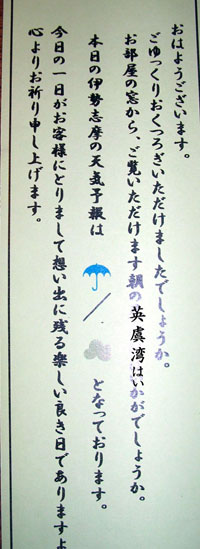 おはようございます。
ごゆっくりおくつろぎいただけましたでしょうか。
お部屋の窓から、ご覧いただけます朝の英虞湾はいかがでしょうか。
本日の伊勢志摩の天気予報は ☂/☁ となっております。
今日の一日がお客様にとりまして想い出に残る楽しい良き日でありますよ
心よりお祈り申し上げます。